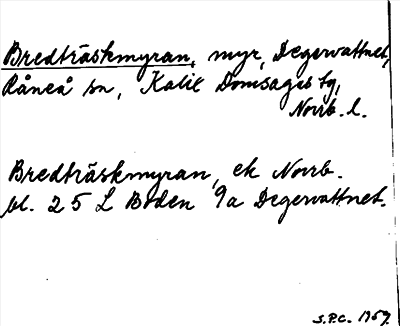 Bredträskmyran, myr, Degervattnet,
Råneå sn, Kalix Domsagas tg,
Norrb. l.
Bredträskmyran, ek Norrb.
bl. 25 L Boden 9a Degervattnet.
S.P.C. 1957.